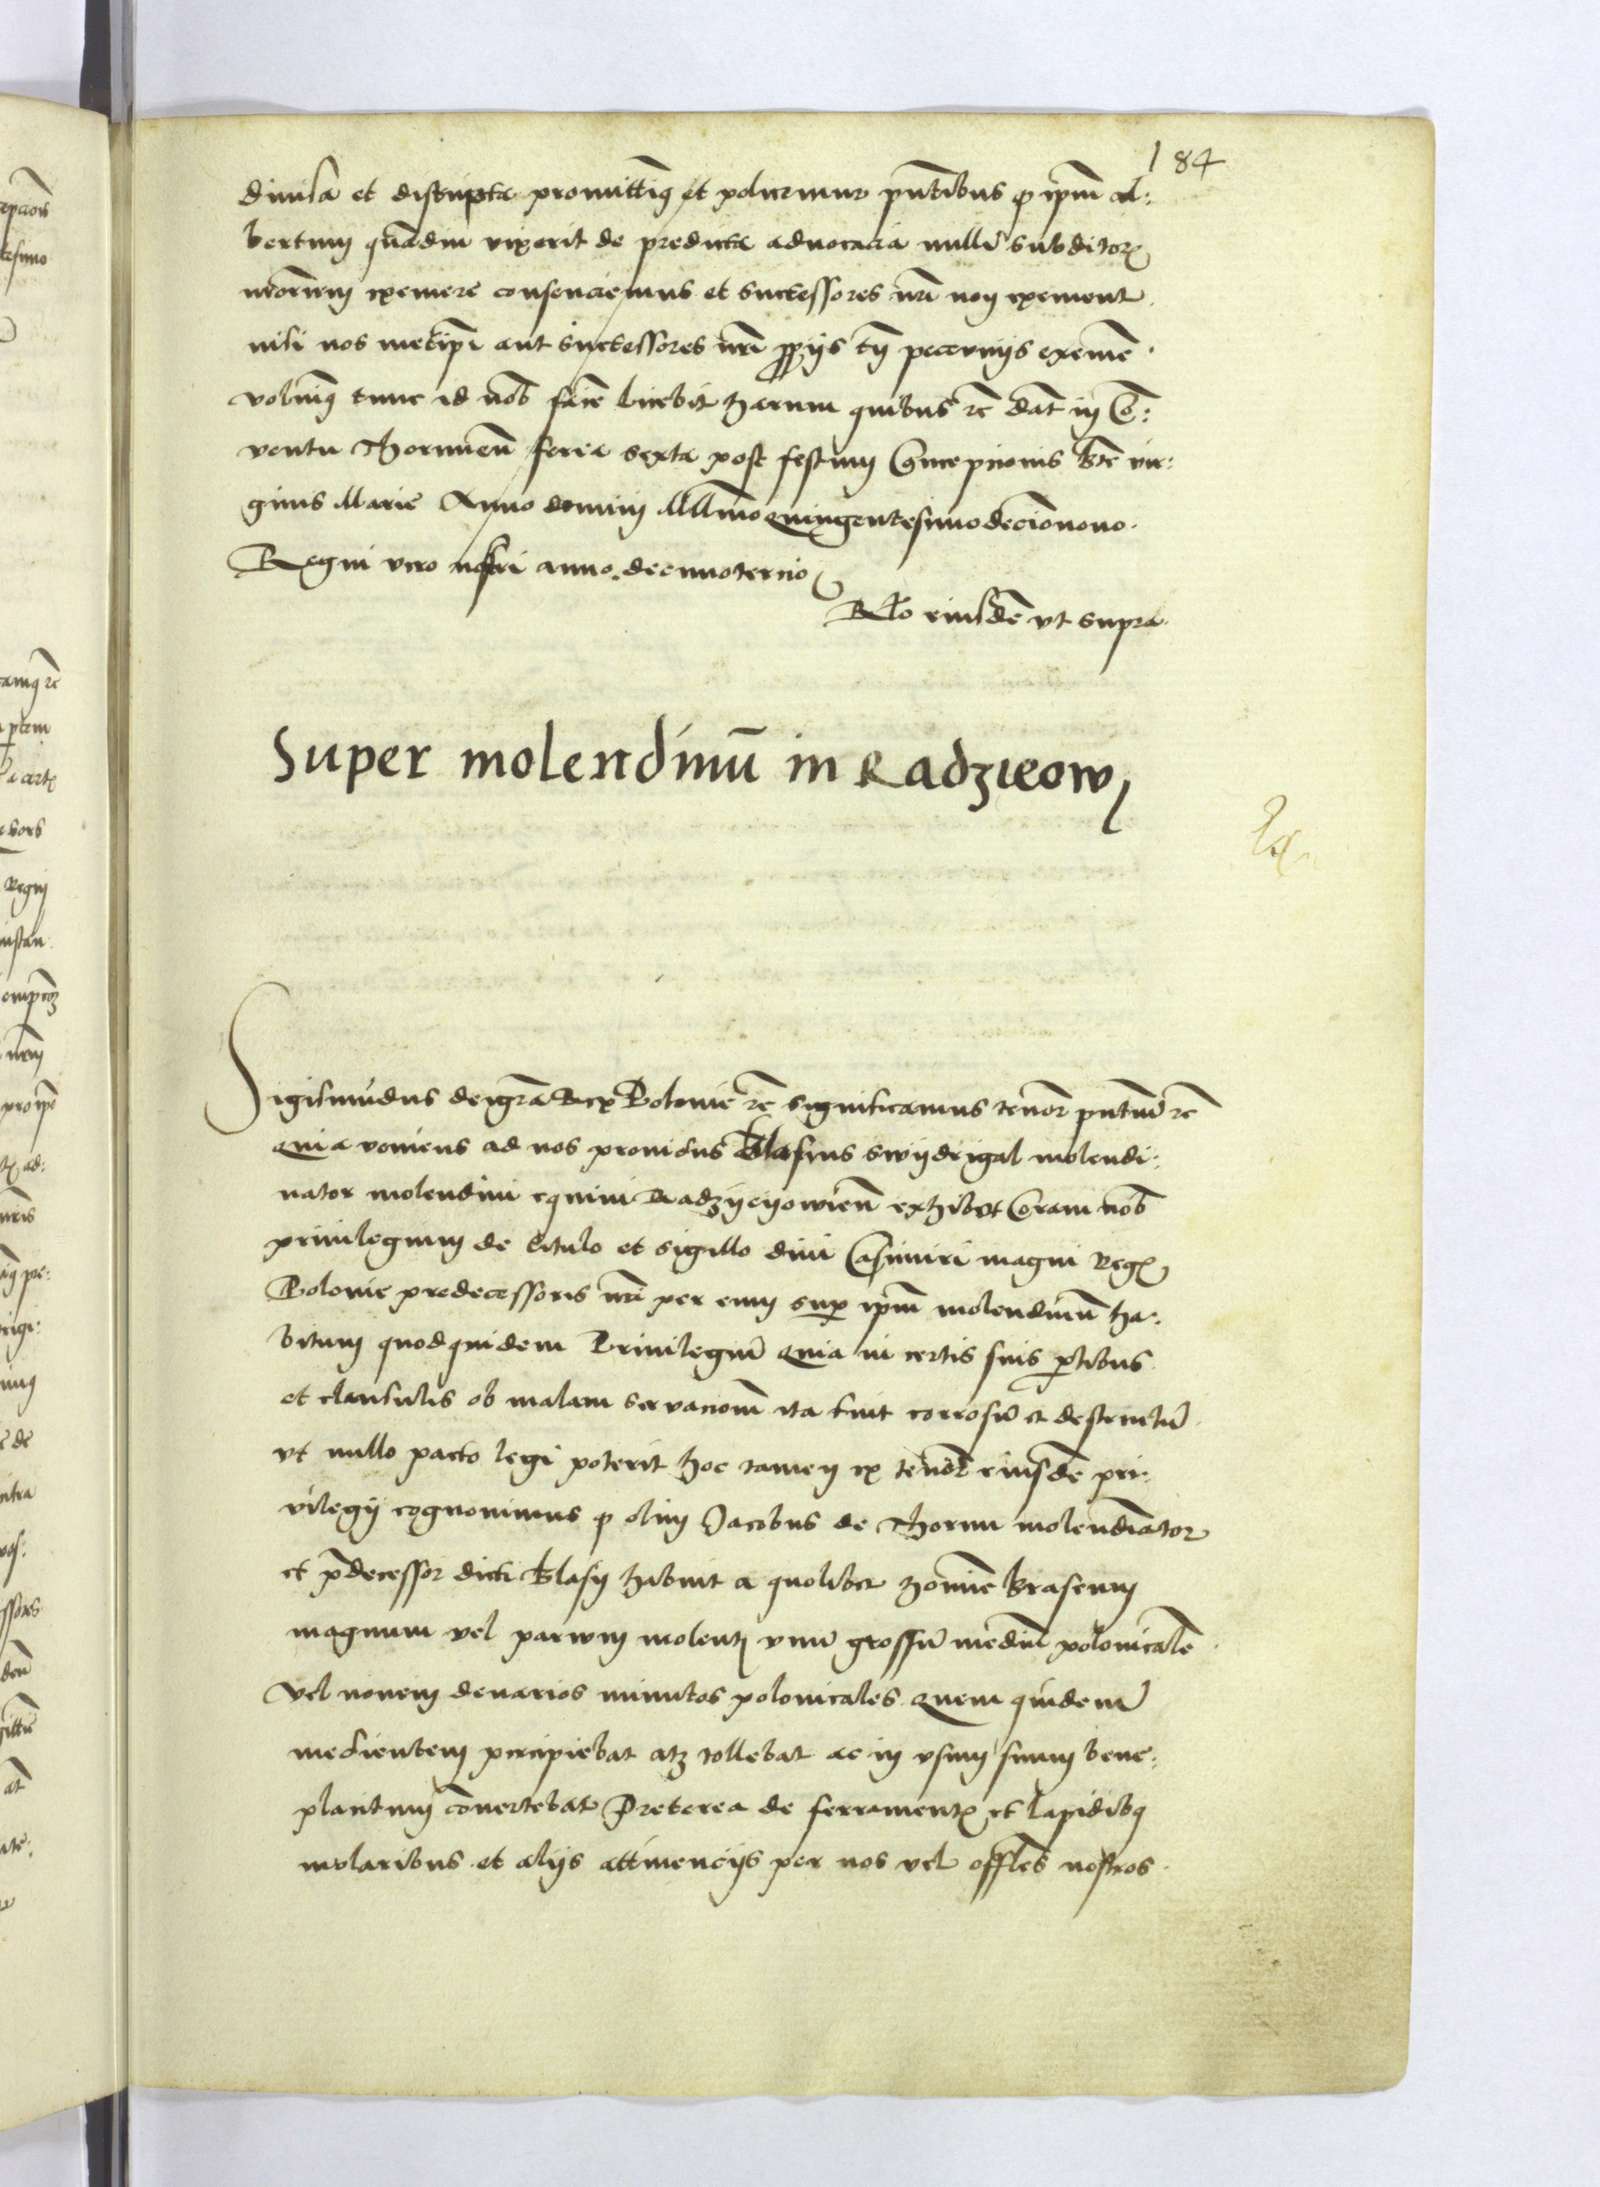 184
diuisa et distincta promittimq et pollicemur pntibus q ipm Al:
bertum quadiu vixerit de predicta aduocacia nulli subditor
nrorum exemere consenciemus et successores nri non exement
nisi nos metipi aut successores nri pprijs tn pecunijs exeme
voluimq tunc id nob facie licebit harum quibus rc dat in Con:
uentu Thorunen feria sexta post festum Concepcionis bte vir:
ginis Marie Anno domini Millmo quingentesimo decionono
Regni vero nostri anno decimotercio
Rlo eiusde vt supra
Super molendinu in Radzieow
Sigismudus dei gra Rex Polonie rc significamus tenor pntiu rc
Quia veniens ad nos prouidus Blasius Swijdrigal molendi:
nator molendini equini Radzijeijowien exhibuit Coram nob
priuilegium de titulo et sigillo diui Casimiri magni Reg
Polonie predecessoris nri per eum sup ipm molendinu ha:
bitum quodquidem Priuilegiu Quia in certis suis ptibus
et clausulis ob malam seruaciom ita fuit corrosu et destructu
vt nullo pacto legi poterit hoc tamen ex tenor eiusde pri:
uilegij cognouimus q olim Jacobus de Thorun molendiator
et pdecessor dicti Blasij habuit a quolibet homie braseum
magnum vel paruum molent vnu grossu mediu polonicale
Vel nouem denarios minutos polonicales Quem quidem
medientem percipiebat atq tollebat ac in vsum suum bene:
placitum conuertebat Preterea de ferrament et lapidibq
molaribus et alijs attinencijs per nos vel offles nostros